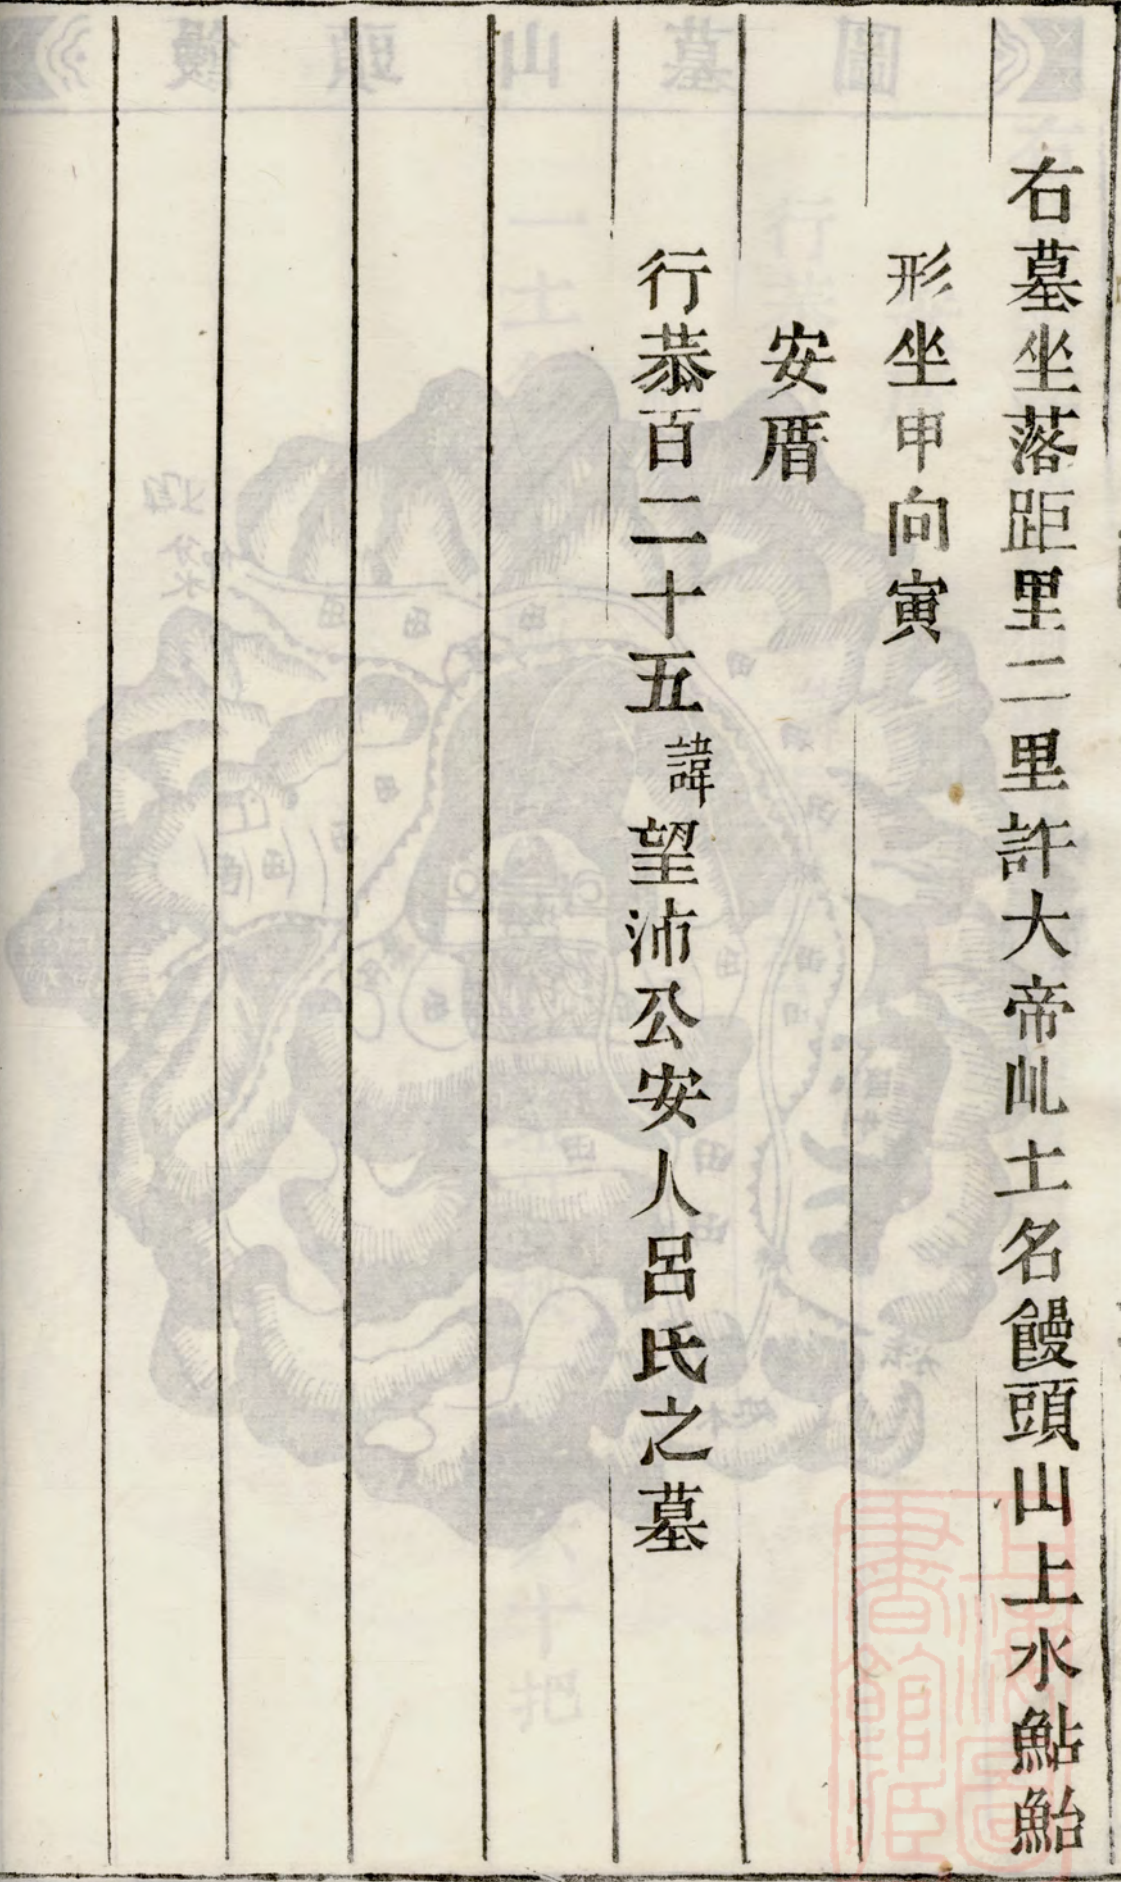 右墓坐落距里二里許大帝乢土名饅頭山上水鮎鮐
形坐申向寅
安厝
行恭百二十五諱望沛公安人呂氏之墓
上海圖書館藏